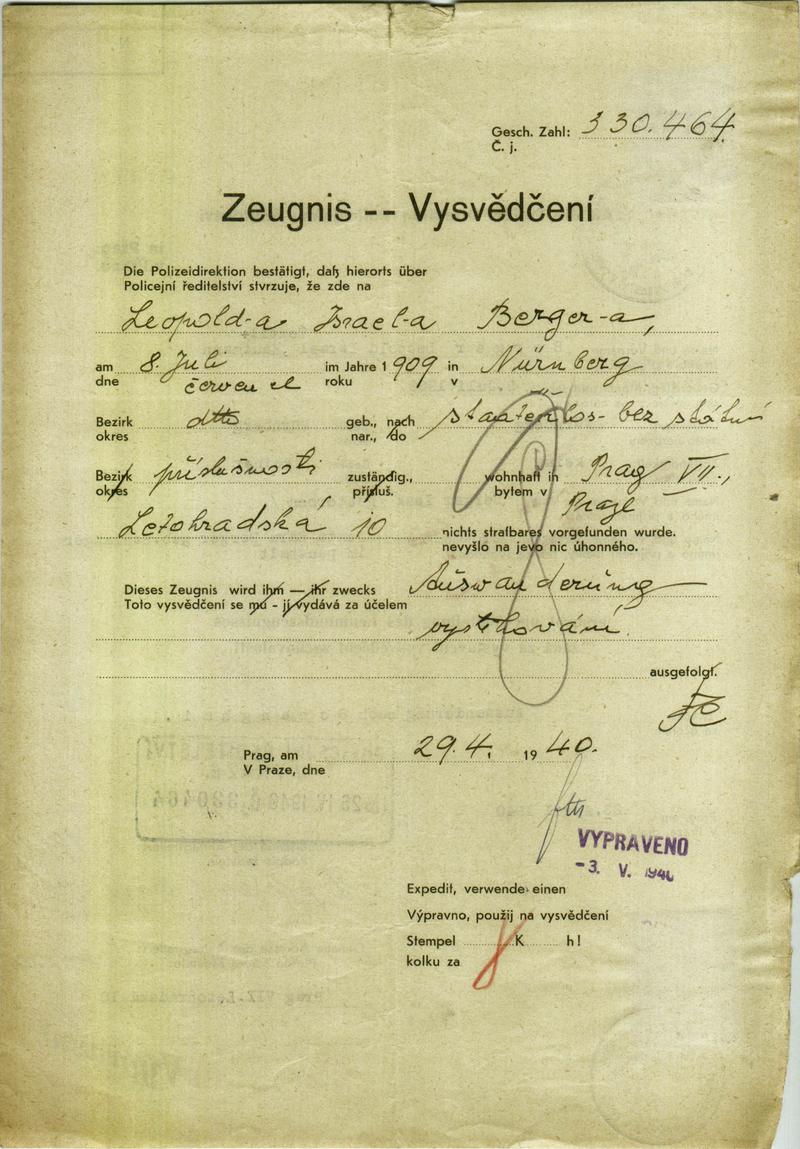 Gesch. Zahl: 330.464
Č. j.
Zeugnis -- Vysvědčení
Die Polizeidirektion bestätigt, daß hierorts über
Policejní ředitelství stvrzuje, že zde na
Leopold-a Israel-a Berger-a,
am 8. Juli im Jahre 1909 in Nürnberg
dne červen roku v
Bezirk dtto geb., nach staatenlos - bez státní
okres nar., do
Bezirk příslušnosti zuständig., wohnhaft in Prag VII.,
okres , přísluš. bytem v Praze
Letohradská 10 nichts strafbares vorgefunden wurde.
nevyšlo na jevo nic úhonného.
Dieses Zeugnis wird ihm — ihr zwecks Auswanderung
Toto vysvědčení se mu - jí vydává za účelem
vystěhování
ausgefolgt.
Prag, am 29.4. 1940.
V Praze, dne
VYPRAVENO
-3. V. 1940
Expedit, verwende einen
Výpravno, použij na vysvědčení
Stempel K h!
kolku za